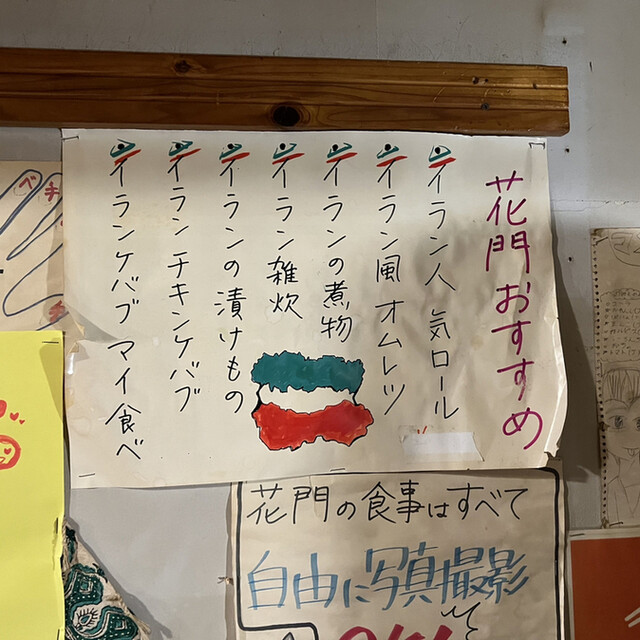 花門おすすめ
イラン人気ロール
イラン風オムレツ
イランの煮物
イラン雑炊
イランの漬けもの
イランチキンケバブ
イランケバブマイ食べ
花門の食事はすべて
自由に写真撮影